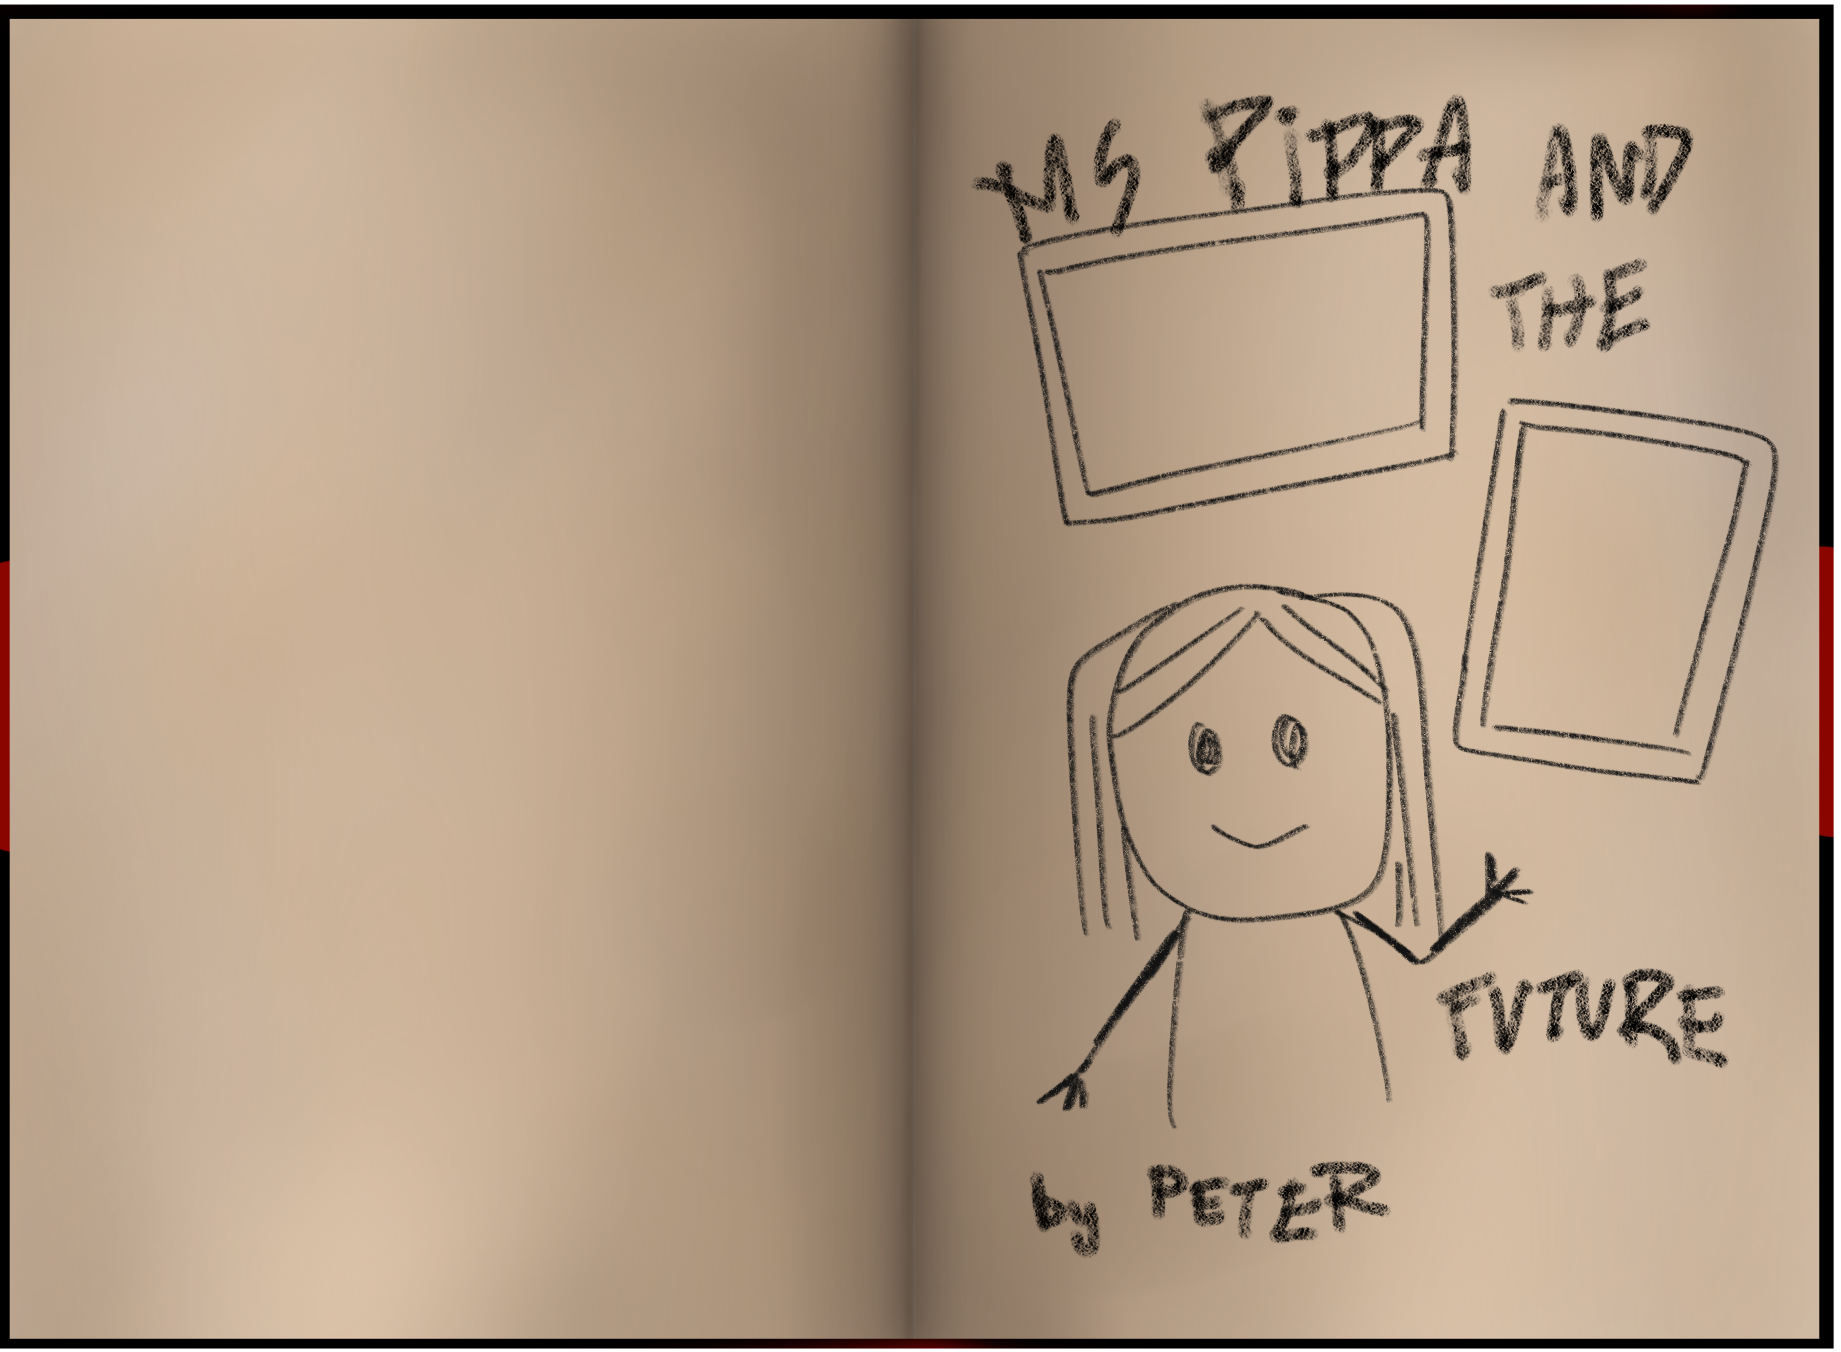 MS PiPPA AND
THE
FUTURE
by PETER